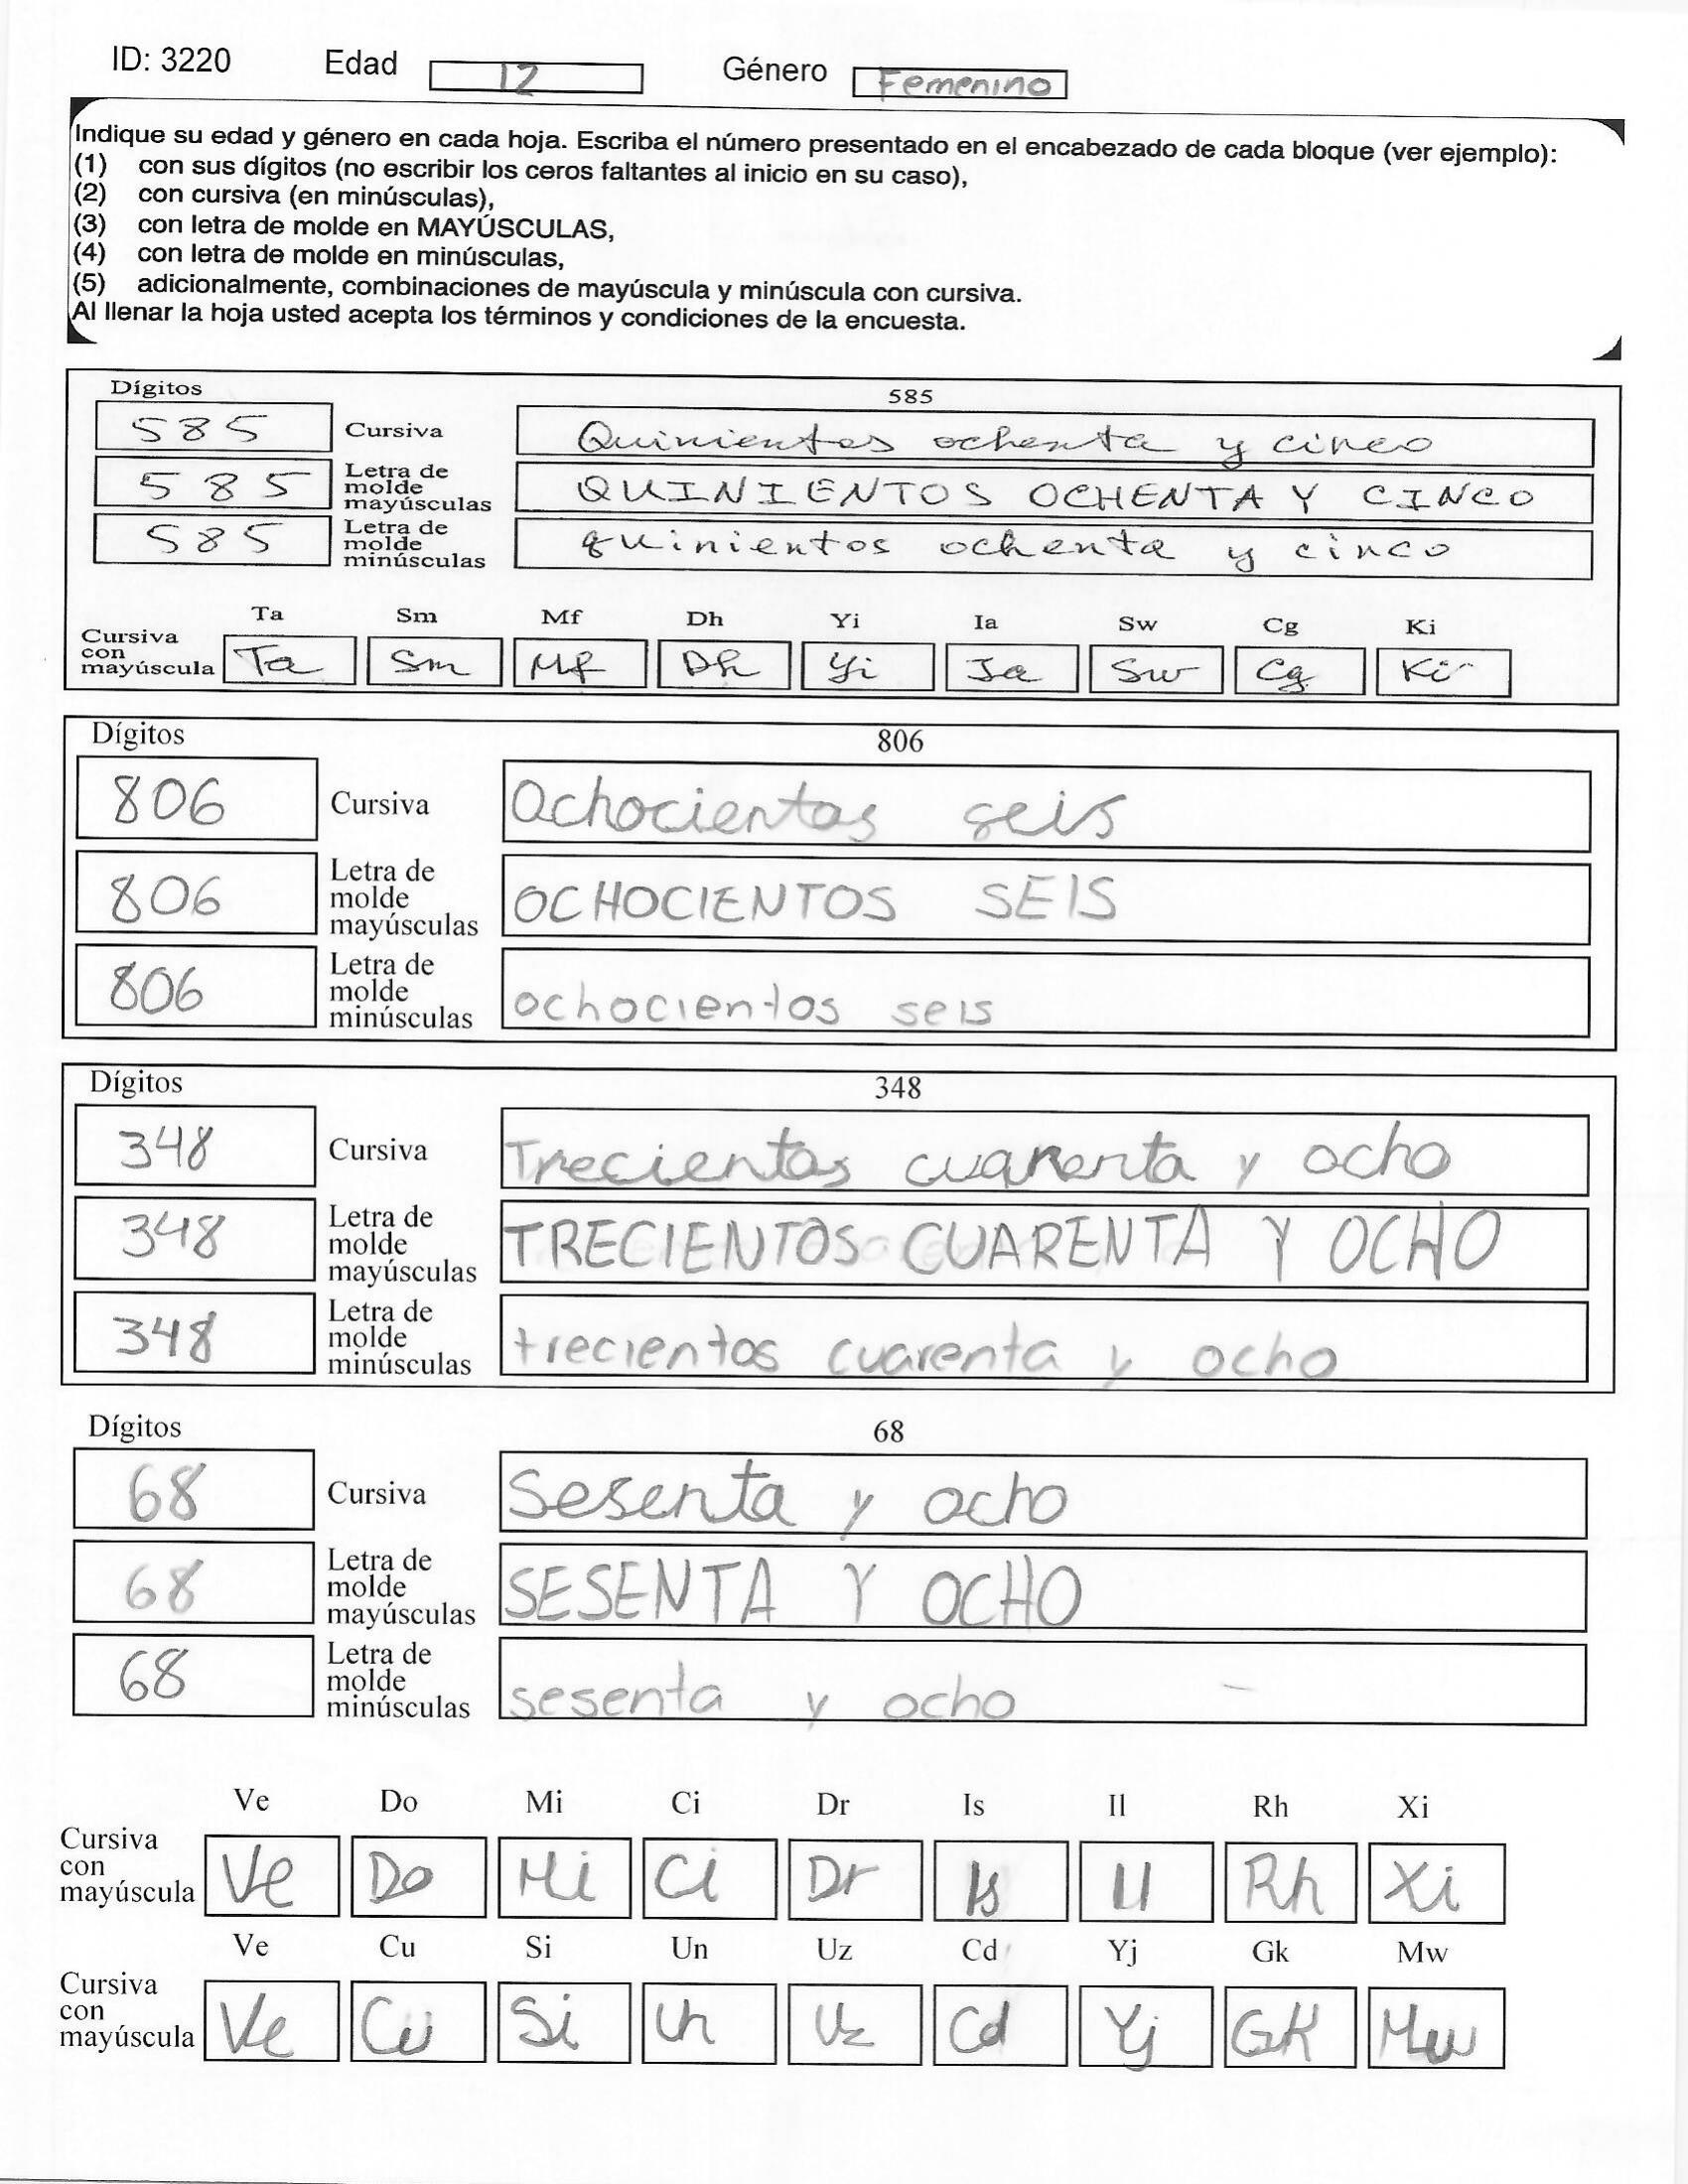 ID: 3220 Edad 12 Género Femenino
Indique su edad y género en cada hoja. Escriba el número presentado en el encabezado de cada bloque (ver ejemplo):
(1) con sus dígitos (no escribir los ceros faltantes al inicio en su caso),
(2) con cursiva (en minúsculas),
(3) con letra de molde en MAYÚSCULAS,
(4) con letra de molde en minúsculas,
(5) adicionalmente, combinaciones de mayúscula y minúscula con cursiva.
Al llenar la hoja usted acepta los términos y condiciones de la encuesta.
Dígitos 585
585 Cursiva Quinientos ochenta y cinco
585 Letra de molde mayúsculas QUINIENTOS OCHENTA Y CINCO
585 Letra de molde minúsculas quinientos ochenta y cinco
Ta Sm Mf Dh Yi Ia Sw Cg Ki
Cursiva con mayúscula Ta Sm Mf Dh Yi Ia Sw Cg Ki
Dígitos 806
806 Cursiva Ochocientos seis
806 Letra de molde mayúsculas OCHOCIENTOS SEIS
806 Letra de molde minúsculas ochocientos seis
Dígitos 348
348 Cursiva Trecientos cuarenta y ocho
348 Letra de molde mayúsculas TRECIENTOS CUARENTA Y OCHO
348 Letra de molde minúsculas trecientos cuarenta y ocho
Dígitos 68
68 Cursiva Sesenta y ocho
68 Letra de molde mayúsculas SESENTA Y OCHO
68 Letra de molde minúsculas sesenta y ocho
Ve Do Mi Ci Dr Is Il Rh Xi
Cursiva con mayúscula Ve Do Mi Ci Dr Is Il Rh Xi
Ve Cu Si Un Uz Cd Yj Gk Mw
Cursiva con mayúscula Ve Cu Si Un Uz Cd Yj GK Mw